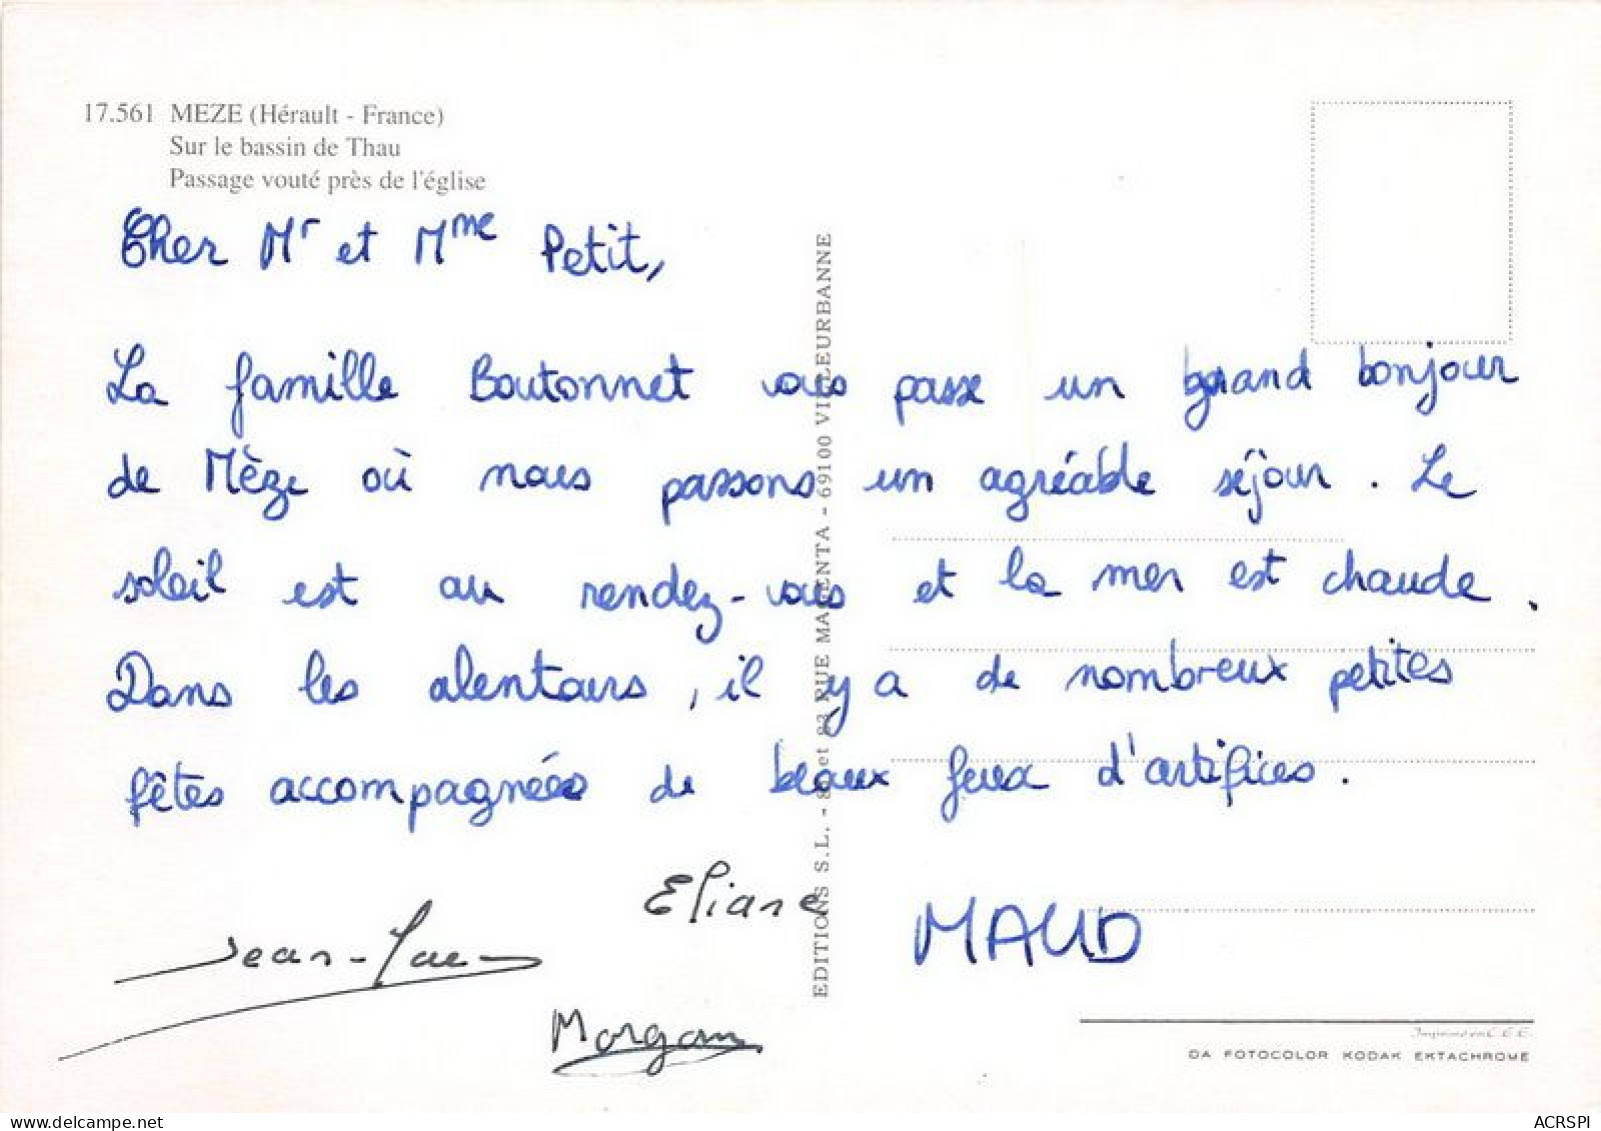 17.561 MEZE (Hérault - France)
Sur le bassin de Thau
Passage vouté près de l'église
Cher Mr et Mme Petit,
La famille Boutonnet vous passe un grand bonjour
de Mèze où nous passons un agréable séjour. Le
soleil est au rendez-vous et la mer est chaude.
Dans les alentours, il y a de nombreux petites
fêtes accompagnées de beaux feux d'artifices.
Eliane
Jean-Luc
MAUD
Morgan
EDITIONS S.L. - et 83 RUE MAGENTA - 69100 VILLEURBANNE
Imprimé en C.E.E.
DA FOTOCOLOR KODAK EKTACHROME
ACRSPI